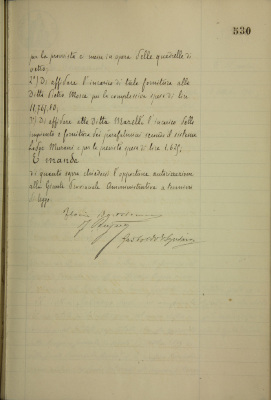 530
per la provvista e messa in opera delle quadrelle di
vetro;
2°) Di affidare l'incarico di tale fornitura alla
Ditta Pietro per la complessiva spesa di lire
11,765,10;
3°) Di affidare alla Ditta l'incarico dello
impianto e fornitura dei parafulmini secondo il sistema
e per la prevista spesa di lire 1.635.
E manda
di quanto sopra chiedersi l'opportuna autorizzazione
alla Giunta Provinciale Amministrativa a termini
di legge.